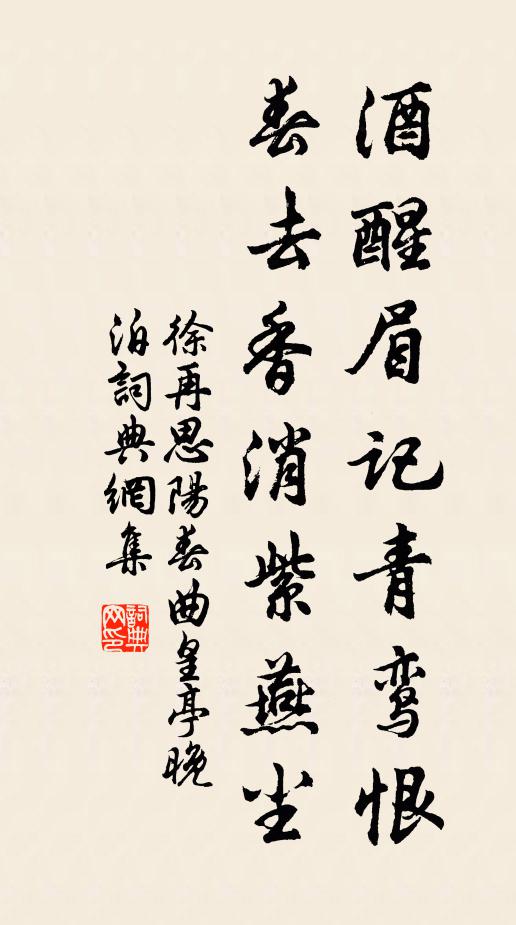 酒醒眉记青鸾恨
春去香消紫燕尘
徐再思陽春曲皇亭晚
泊詞典網集
詞典
网印